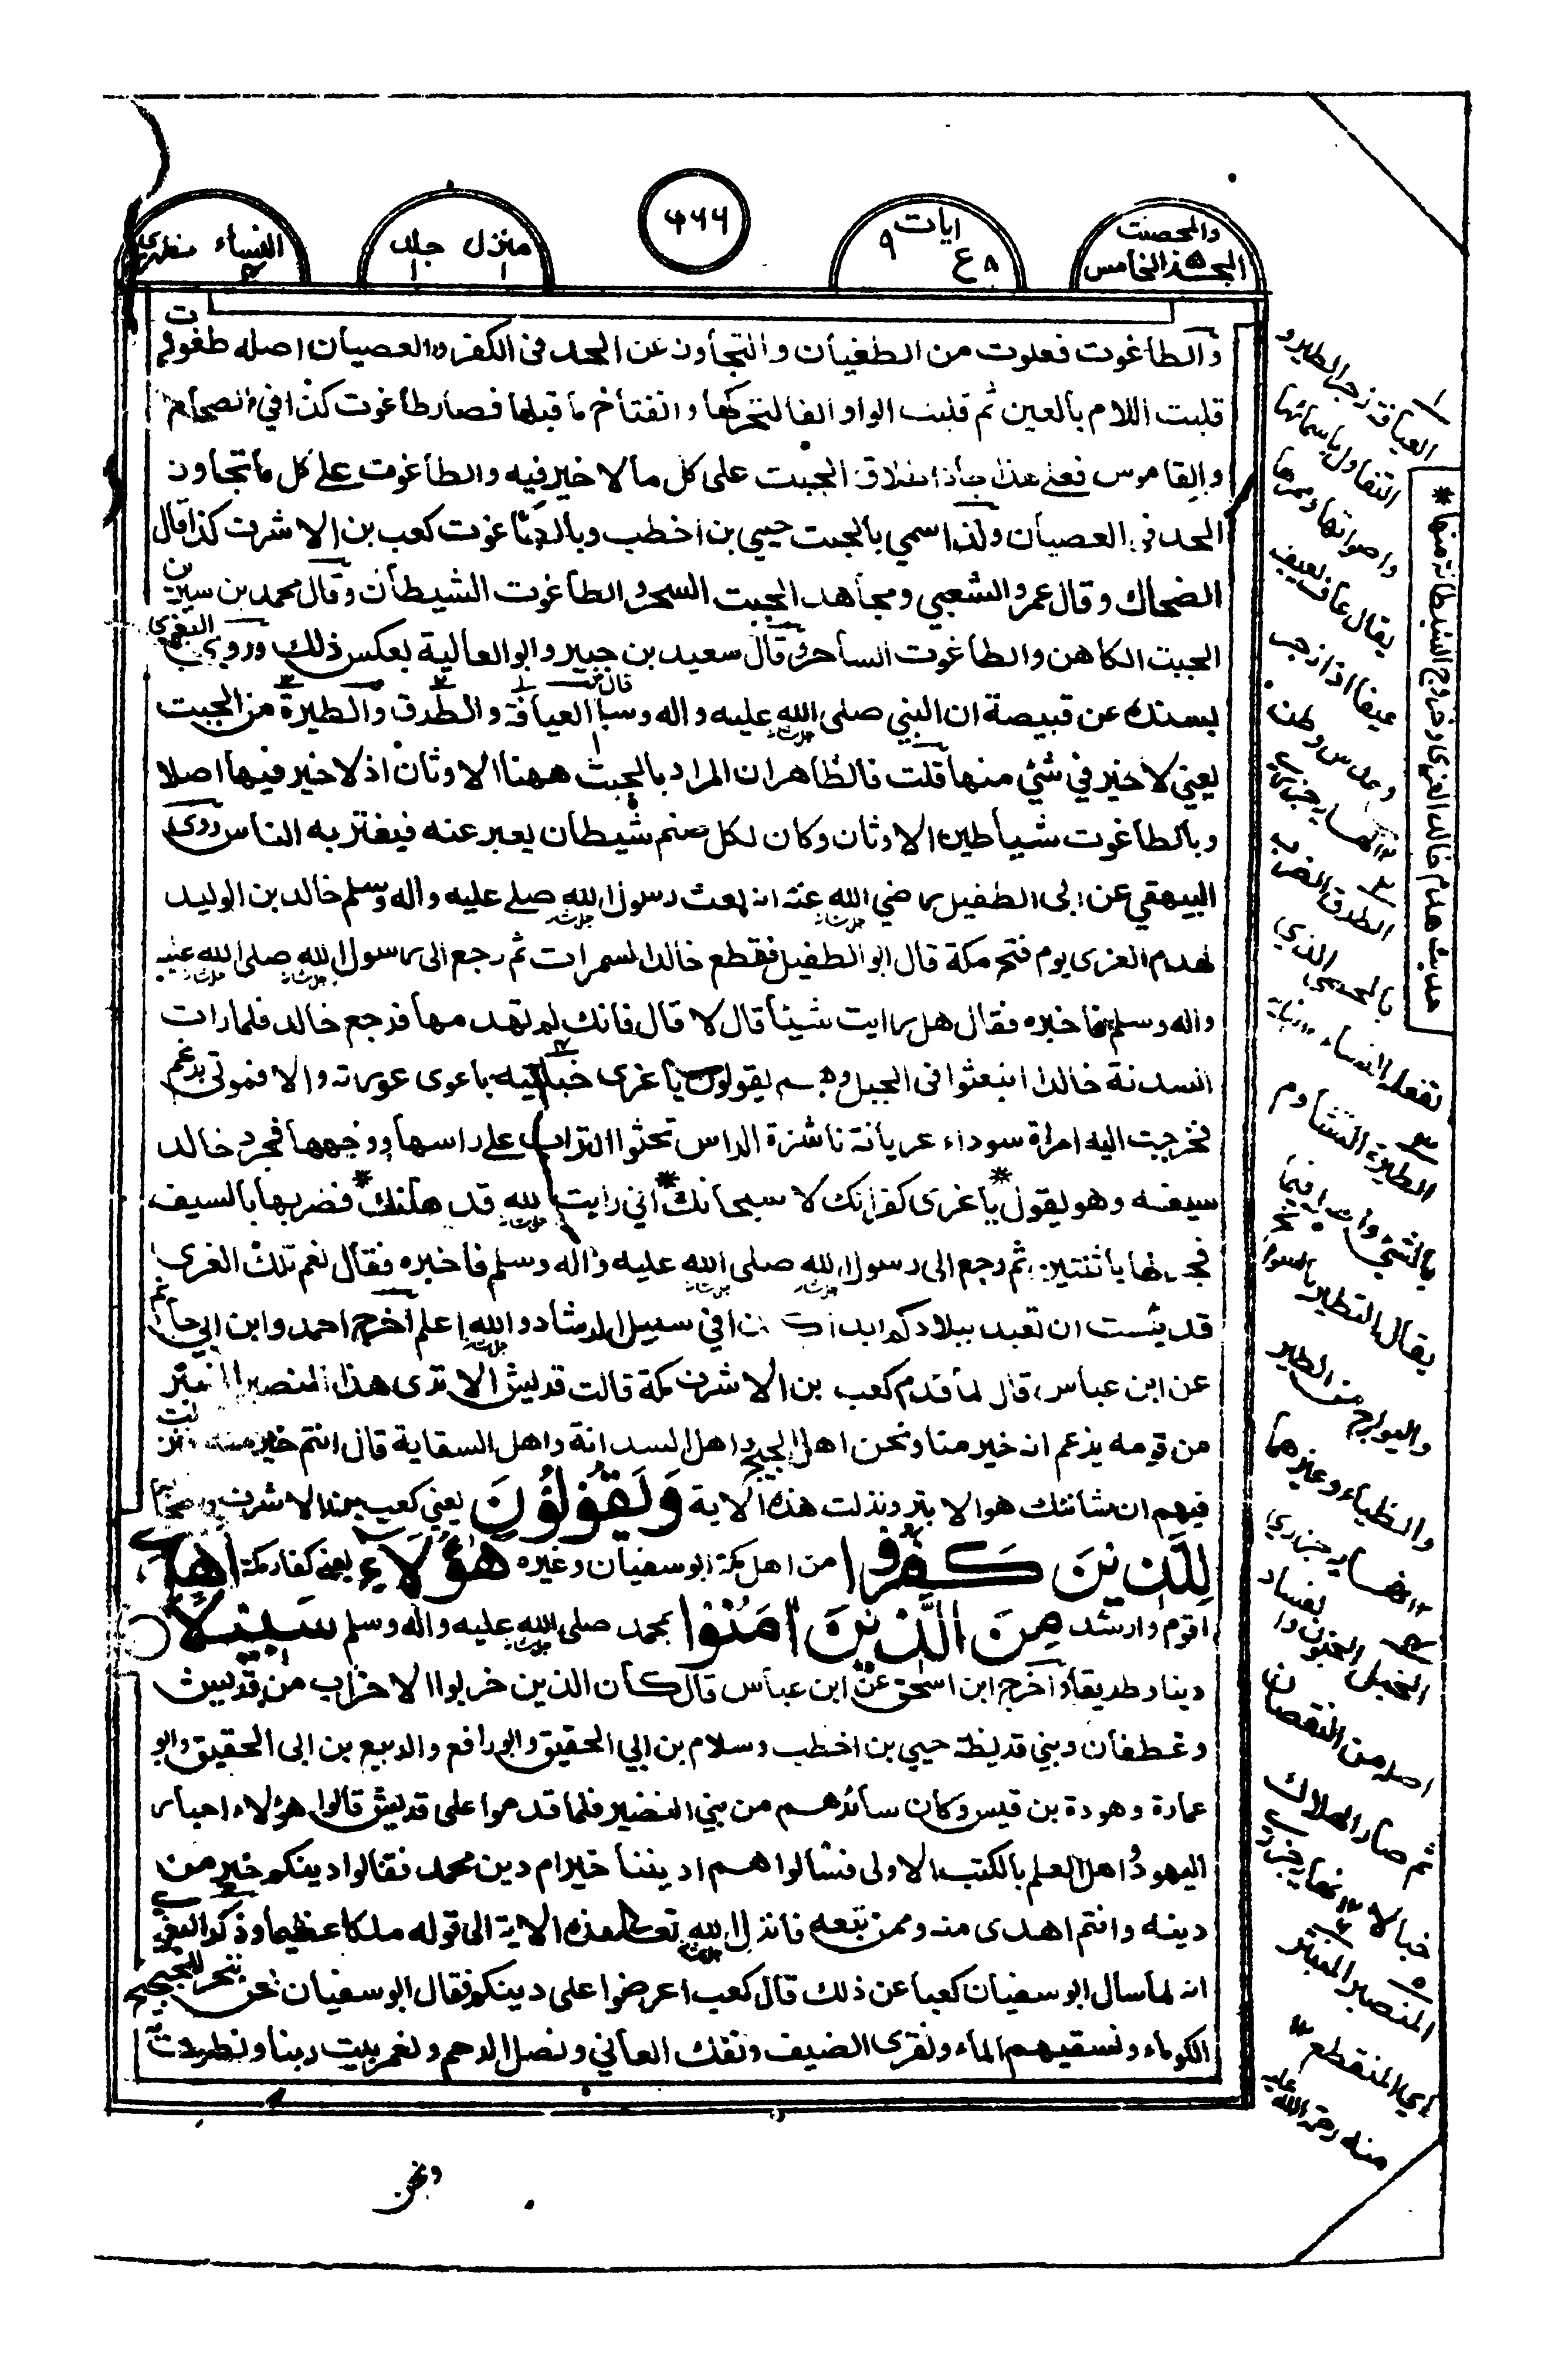 والمحصنت
الجزء الخامس
ايات ٩
ع ٨
٤٦٦
منزل ١ جلد
النساء ٤ مظهری
والطاغوت فعلوت من الطغيان والتجاوز عن الحد فى الكفر والعصيان اصله طغووت
قلبت اللام بالعين ثم قلبت الواو الفا لتحركها وانفتاح ما قبلها فصار طاغوت كذا في الصحاح
والقاموس فعلى هذا جاز اطلاق الجبت على كل ما لا خير فيه والطاغوت على كل ما تجاوز
الحد فى العصيان ولذا سمي بالجبت حيي بن اخطب وبالطاغوت كعب بن الاشرف كذا قال
الضحاك وقال عمر والشعبي ومجاهد الجبت السحر والطاغوت الشيطان وقال محمد بن سيرين
الجبت الكاهن والطاغوت الساحر وقال سعيد بن جبير وابو العالية بعكس ذلك وروى البغوى
بسنده عن قبيصة ان النبي صلى الله عليه واله وسلم قال العيافة والطرق والطيرة من الجبت
يعني لا خير في شئ منها قلت فالظاهر ان المراد بالجبت ههنا الاوثان اذ لا خير فيها اصلا
وبالطاغوت شياطين الاوثان وكان لكل صنم شيطان يعبر عنه فيغتر به الناس روى
البيهقي عن ابى الطفيل رضي الله عنه انه بعث رسول الله صلے عليه واله وسلم خالد بن الوليد
لهدم العزى يوم فتح مكة قال ابو الطفيل فقطع خالد السمرات ثم رجع الى رسول الله صلى الله عليه
واله وسلم فاخبره فقال هل رايت شيئا قال لا قال فانك لم تهدمها فرجع خالد فلما رات
السدنة خالدا انبعثوا فى الجبل وهم يقولون يا عزى خبليه يا عزى عوريه والا فموتى برغم
فخرجت اليه امراة سوداء عريانة ناشزة الراس تحثوا التراب على راسها ووجهها فجرد خالد
سيفه وهو يقول يا عزى كفرانك لا سبحانك * اني رايت الله قد هانك * فضربها بالسيف
فجزلها باثنتين ثم رجع الى رسول الله صلى الله عليه واله وسلم فاخبره فقال نعم تلك العزى
قد يئست ان تعبد ببلادكم ابدا فى سبيل الرشاد والله اعلم اخرج احمد وابن ابي حاتم
عن ابن عباس قال لما قدم كعب بن الاشرف مكة قالت قريش الا ترى هذا المنصبر المنبتر
من قومه يزعم انه خير منا ونحن اهل الحجيج واهل السدانة واهل السقاية قال انتم خير منه فنزلت
فيهم ان شانئك هو الابتر ونزلت هذه الاية وَيَقُوْلُوْنَ يعني كعب بن الاشرف واصحابه
لِلَّذِيْنَ كَفَرُوْا من اهل مكة ابو سفيان وغيره هٰۤؤُلَآءِ يعنى كفار مكة اَهْدٰى
اقوم وارشد مِنَ الَّذِيْنَ اٰمَنُوْا بمحمد صلى الله عليه واله وسلم سَبِيْلًا
دينا وطريقا واخرج ابن اسحق عن ابن عباس قال كان الذين حزبوا الاحزاب من قريش
وغطفان وبني قريظة حيي بن اخطب وسلام بن ابي الحقيق وابو رافع والربيع بن ابى الحقيق وابو
عمارة وهودة بن قيس وكان سائرهم من بني النضير فلما قدموا على قريش قالوا هؤلاء احبار
اليهود اهل العلم بالكتب الاولى فسألوا هم اديننا خير ام دين محمد فقالوا دينكم خير من
دينه وانتم اهدى منه وممن تبعه فانزل الله تعالى هذه الاية الى قوله ملكا عظيما وذكر البغوى
انه لما سأل ابو سفيان كعبا عن ذلك قال كعب اعرضوا على دينكم فقال ابو سفيان نحن ننحر للحجيج
الكوماء ونسقيهم الماء ونقرى الضيف ونفك العاني ونصل الرحم ونعمر بيت ربنا ونطوف به
ونحن
١
العيافة زجر الطير و
التفاول باسمائها
واصواتها وممرها
يقال عاف يعيف
عيفا اذا زجر
وحدس وظن
١٢ نهاية جزري
٢
الطرق الضرب
بالحصى الذي
تفعله النساء ١٢ نهاية
٣
الطيرة التشاوم
بالشئ
يقال التطير بالسوانح
والبوارح من الطير
والظباء وغيرهما
١٢ نهاية جزري
الخبل الجنون وا لفساد
اصله من النقصان
ثم صار الهلاك
خبالا ١٢ نهاية جزري
٥
المنصبر المنبتر
اي المنقطع ١٢
منه رحمة الله عليه
حديث هدم خالد العزى وخروج الشيطانة منها *